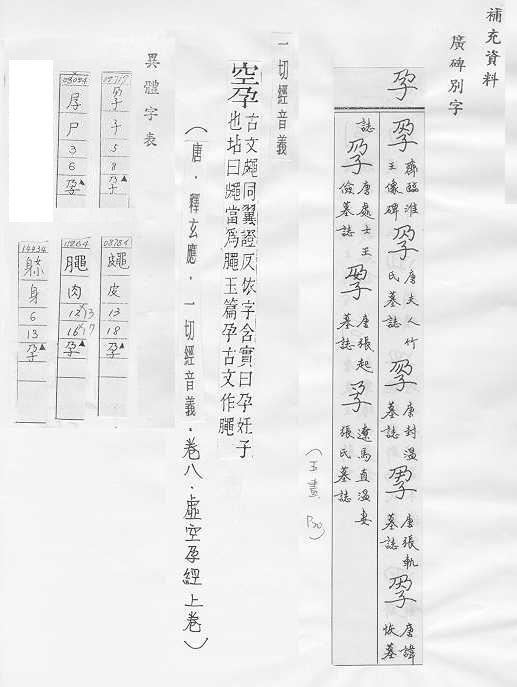 補充資料
廣碑別字
孕
孕 齊臨淮王像碑
孕 唐夫人竹氏墓誌
孕 唐封溫墓誌
孕 唐張軌墓誌
孕 唐諱恢墓誌
孕 唐處士王儉墓誌
孕 唐張起墓誌
孕 遼馬直溫妻張氏墓誌
(五畫 P30)
一切經音義
空孕 古文㛴同翼證反依字含實曰孕妊子
也坫曰㛴當爲䐄玉篇孕古文作䐄
(唐.釋玄應.一切經音義.卷八.虛空孕經上卷)
異體字表
孕
子
5
8
孕▲
尸
3
6
孕▲
皮
13
18
孕▲
肉
孕▲
14434
身
6
13
孕▲